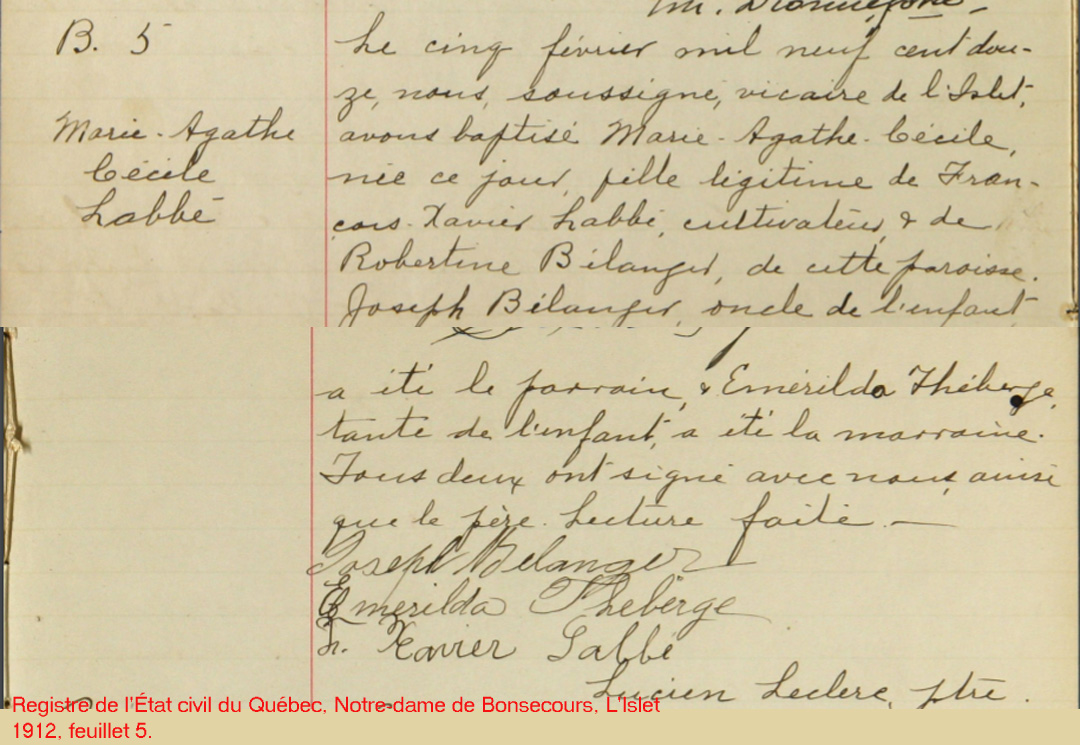 B. 5
Marie-Agathe
Cécile
Labbé
Le cinq février mil neuf cent dou-
ze, nous, soussigné, vicaire de l'Islet,
avons baptisé Marie-Agathe-Cécile,
née ce jour, fille légitime de Fran-
çois-Xavier Labbé, cultivateur, & de
Robertine Bélanger, de cette paroisse.
Joseph Bélanger, oncle de l'enfant
a été le parrain, & Emérilda Théberge,
tante de l'enfant, a été la marraine.
Tous deux ont signé avec nous, ainsi
que le père. Lecture faite. —
Joseph Belanger
Emerilda Theberge
F. Xavier Labbé
Lucien Leclerc, ptre.
Registre de l'État civil du Québec, Notre-dame de Bonsecours, L'Islet
1912, feuillet 5.